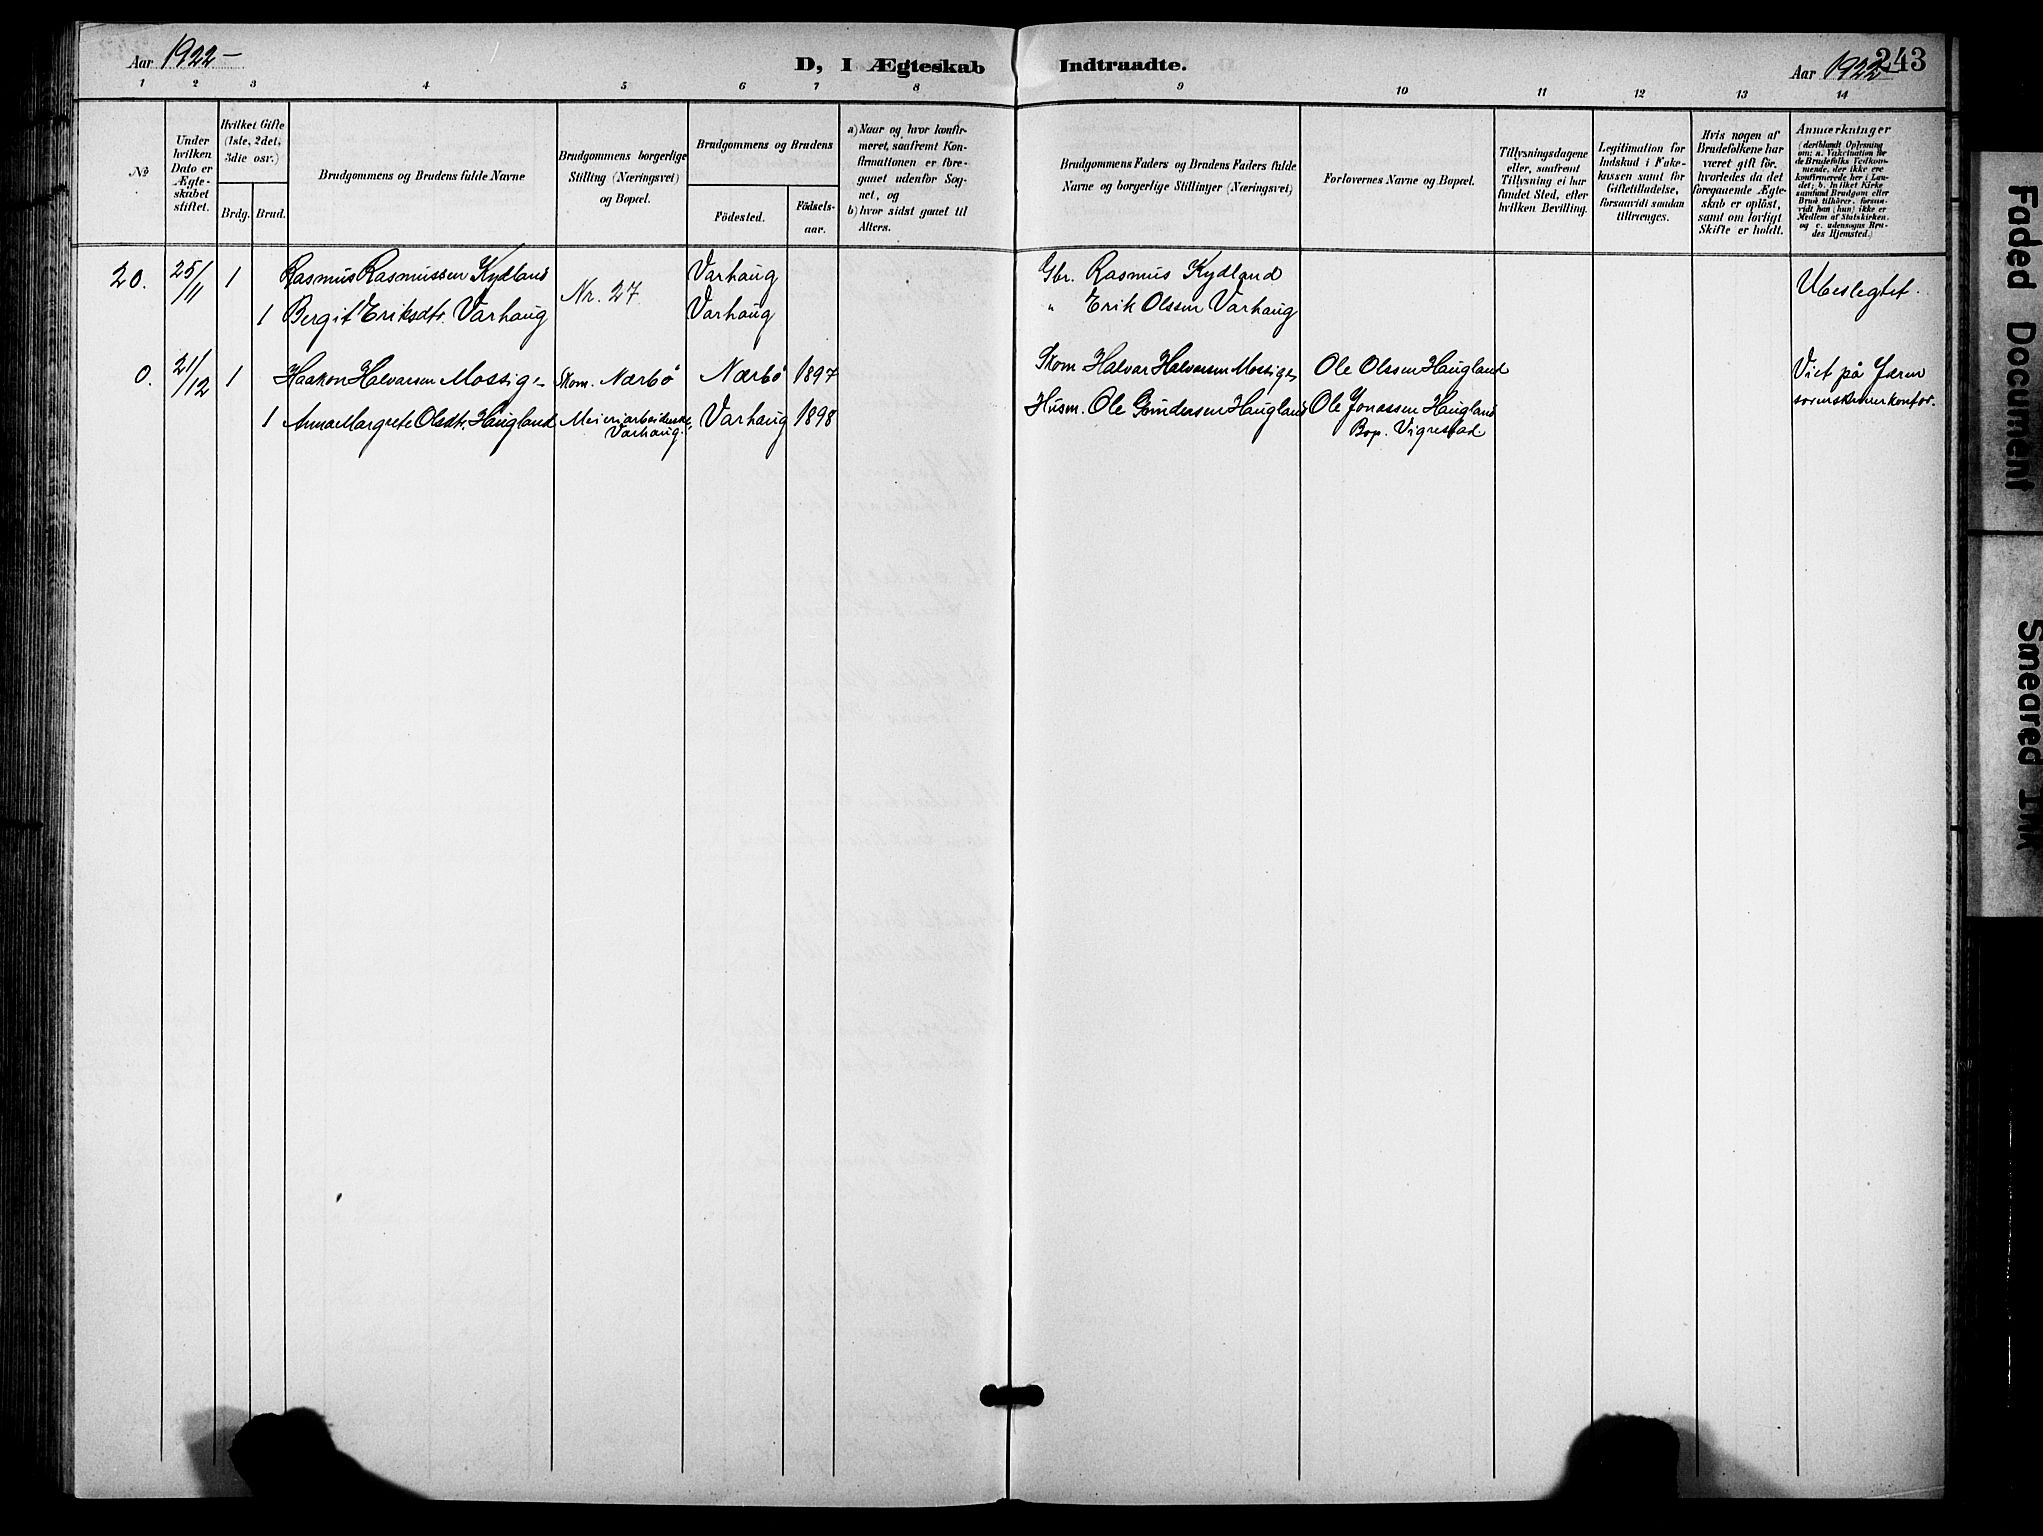 Aar 1922-
D, I Ægteskab Indtraadte.
Aar 1922-
243
1 2 3 4 5 6 7 8 9 10 11 12 13 14
No
Under
hvilken
Dato er
Ægte-
skabet
stiftet.
Hvilket Gifte
(1ste, 2det,
3die osv.)
Brdg. Brud.
Brudgommens og Brudens fulde Navne
Brudgommens borgerlige
Stilling (Næringsvei)
og Bopæl.
Brudgommens og Brudens
Födested.
Födsels-
aar.
a) Naar og hvor konfir-
meret, saafremt Kon-
firmationen er fore-
gaaet udenfor Sog-
net, og
b) hvor sidst gaaet til
Alters.
Brudgommens Faders og Brudens Faders fulde
Navne og borgerlige Stillinger (Næringsvei)
Forlovernes Navne og Bopæl.
Tillysningsdagene
eller, saafremt
Tillysning ei har
fundet Sted, efter
hvilken Bevilling.
Legitimation for
Indskud i Enke-
kassen samt for
Giftetilladelse,
forsaavidt saadan
tiltrænges.
Hvis nogen af
Brudefolkene har
været gift för,
hvorledes da det
foregaaende Ægte-
skab er oplöst,
samt om lovligt
Skifte er holdt.
Anmærkninger
(deriblandt Oplysning
om: a. Vakcination for
de Brudefolks Vedkom-
mende, der ikke ere
konfirmerede her i Lan-
det; b. hvilket Kirke
samfund Brudgom eller
Brud tilhører, forsaa-
vidt han (hun) ikke er
Medlem af Statskirken.
og c. udensogns Bru-
des Hjemsted.)
20. 25/11 1 Rasmus Rasmussen Kydland Nr. 27. Varhaug Gbr. Rasmus Kydland Ubeslegtet.
1 Bergit Eriksdtr. Varhaug Varhaug " Erik Olssen Varhaug
0. 21/12 1 Haakon Halvarsen Mossige Skom. Nærbö Nærbö 1897 Skom Halvar Halvarsen Mossige Ole Olssen Haugland Viet på Jæren
sorenskriverkontor.
1 Anna Margrete Olsdtr. Haugland Meieriarbeiderske, Varhaug 1898 Husm. Ole Gundersen Haugland Ole Jonassen Haugland
Varhaug. Bop. Vigrestad.
Faded Document
Smeared Ink